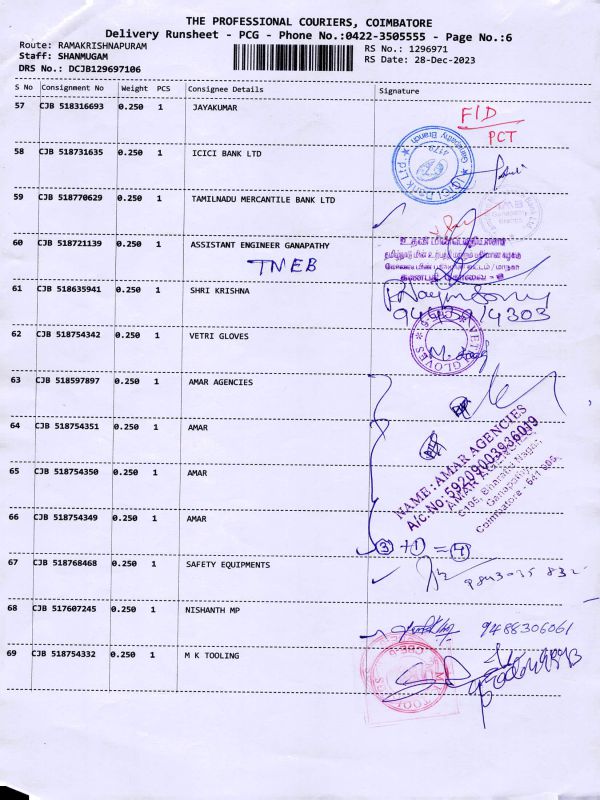 THE PROFESSIONAL COURIERS, COIMBATORE
Delivery Runsheet - PCG - Phone No.:0422-3505555 - Page No.:6
Route: RAMAKRISHNAPURAM RS No.: 1296971
Staff: SHANMUGAM RS Date: 28-Dec-2023
DRS No.: DCJB129697106
S No Consignment No Weight PCS Consignee Details Signature
57 CJB 518316693 0.250 1 JAYAKUMAR
FID
PCT
58 CJB 518731635 0.250 1 ICICI BANK LTD
Ganapathy Branch
4179
59 CJB 518770629 0.250 1 TAMILNADU MERCANTILE BANK LTD
60 CJB 518721139 0.250 1 ASSISTANT ENGINEER GANAPATHY
TNEB
61 CJB 518635941 0.250 1 SHRI KRISHNA
62 CJB 518754342 0.250 1 VETRI GLOVES
GLOVES
63 CJB 518597897 0.250 1 AMAR AGENCIES
64 CJB 518754351 0.250 1 AMAR
NAME: AMAR AGENCIES
A/c.No:59209003936019
Coimbatore
65 CJB 518754350 0.250 1 AMAR
66 CJB 518754349 0.250 1 AMAR
3 + 1 = 4
67 CJB 518768468 0.250 1 SAFETY EQUIPMENTS
68 CJB 517607245 0.250 1 NISHANTH MP
9488306061
69 CJB 518754332 0.250 1 M K TOOLING